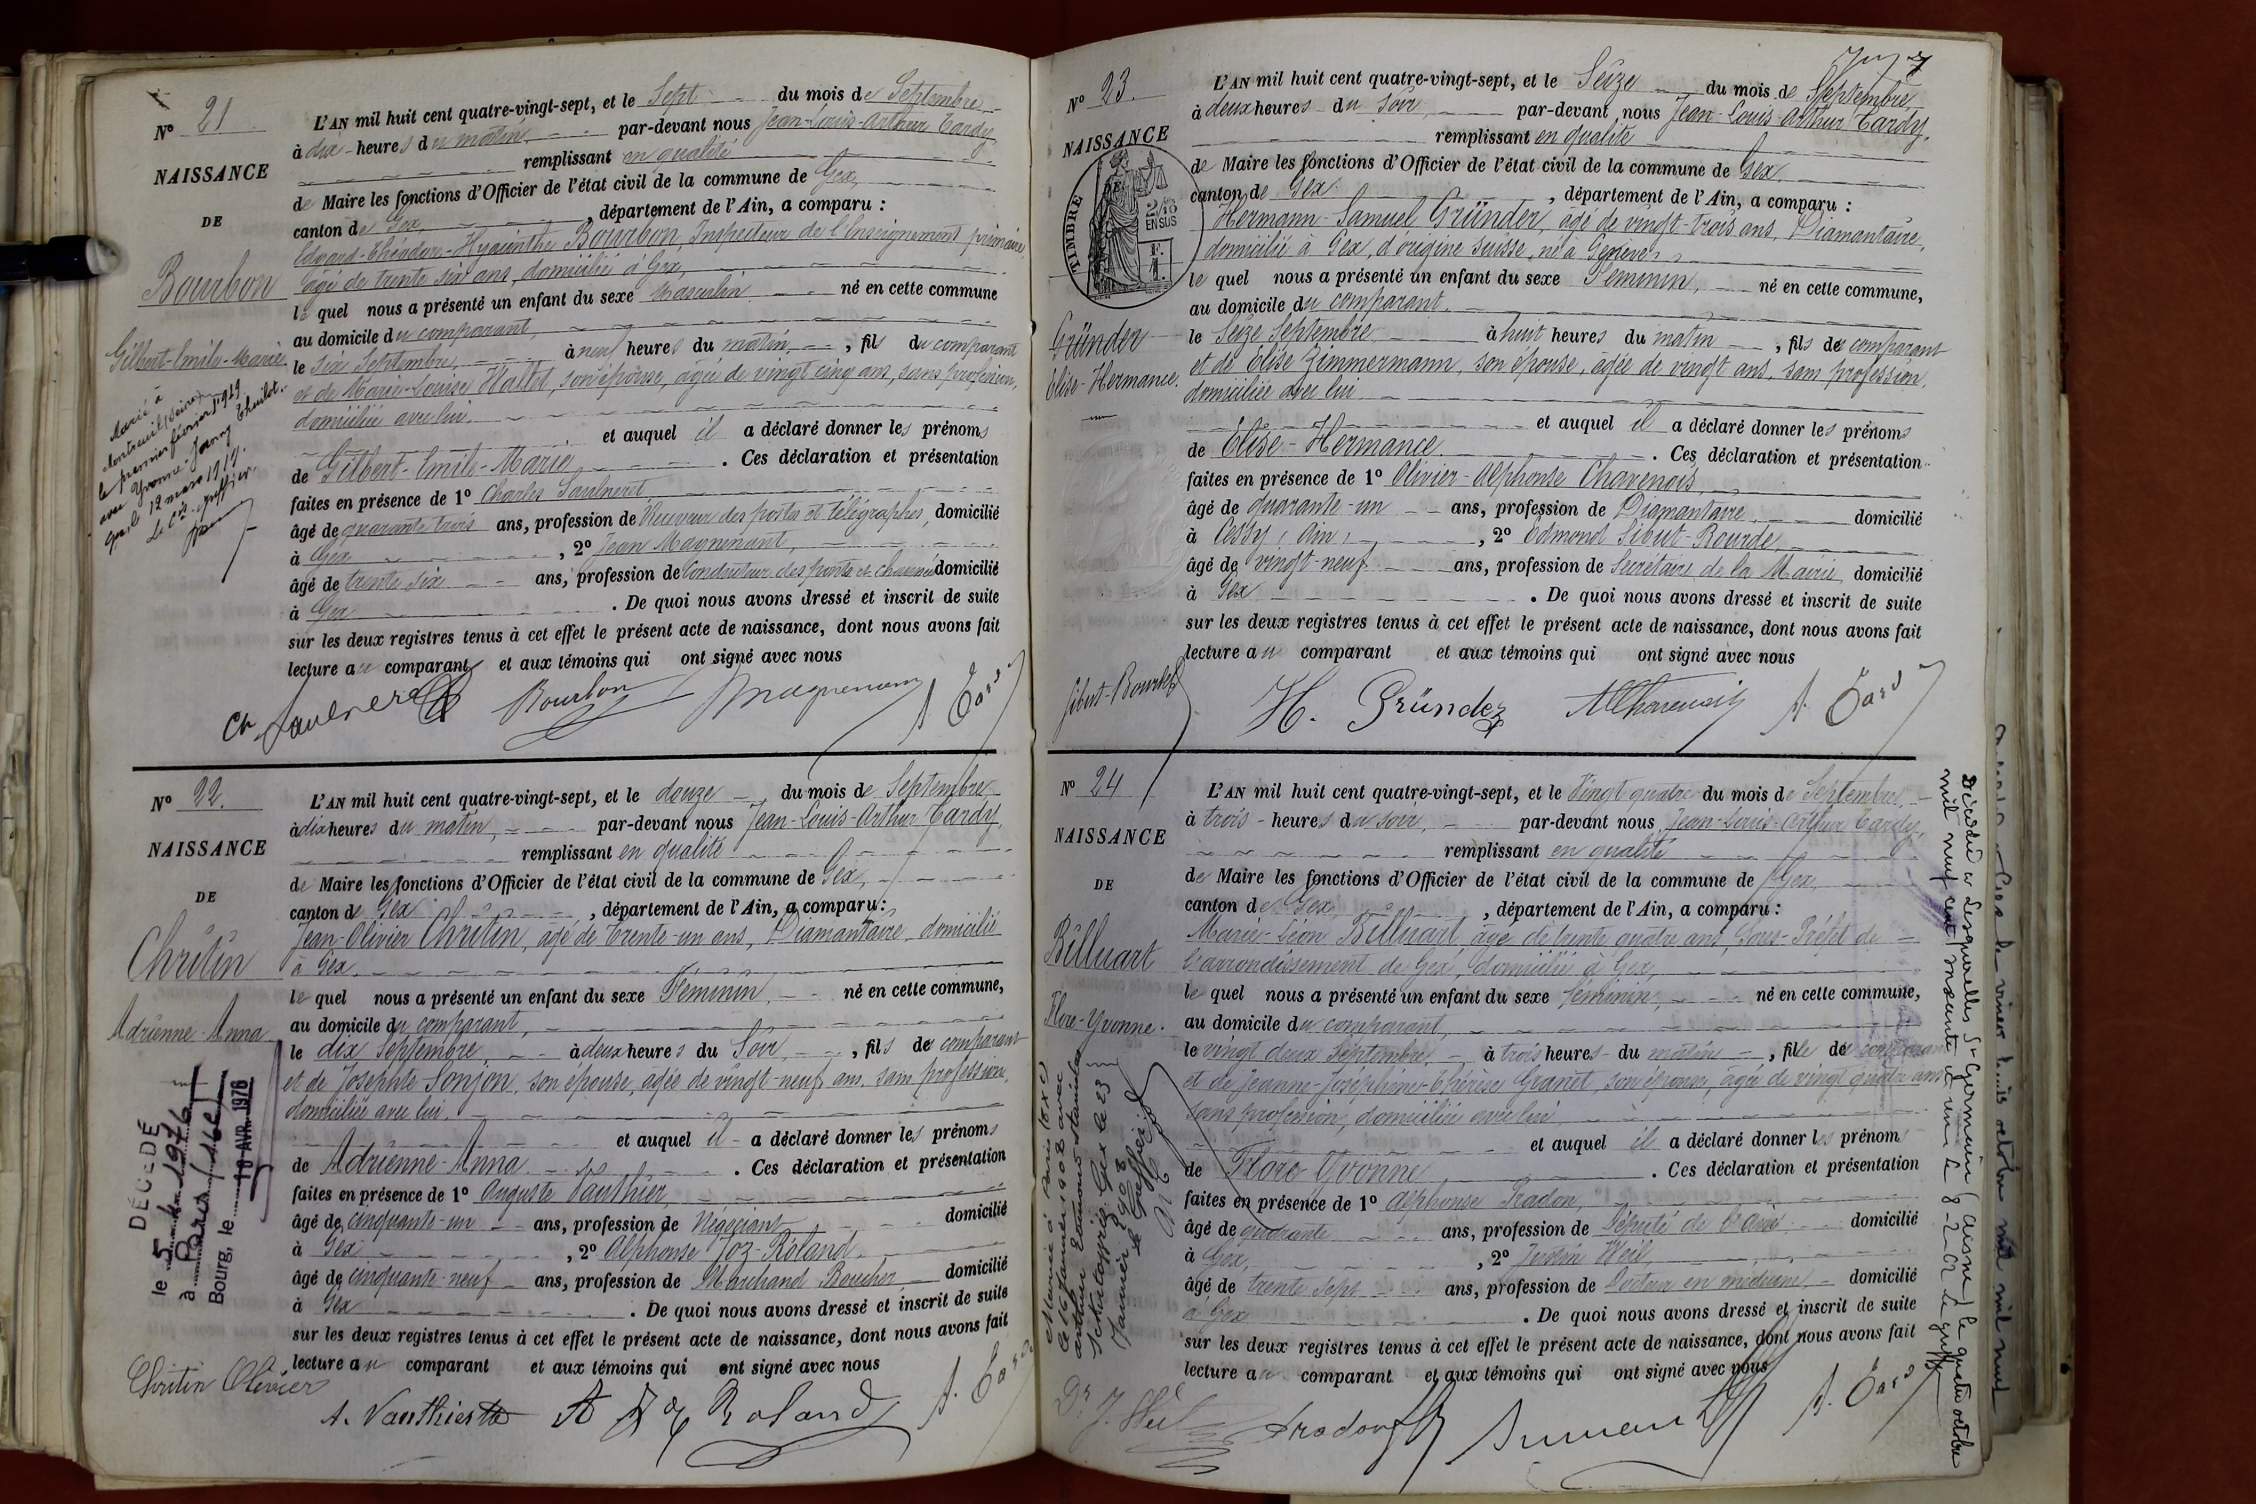 N° 21
NAISSANCE
DE
Bourbon
Gilbert-Emile-Marie
Marié à
Montreuil (Seine)
le premier février 1919
avec Yvonne-Jenny Thuilot.
Gex, le 12 mars 1919.
Le Cis-greffier
L'AN mil huit cent quatre-vingt-sept, et le Sept du mois de Septembre
à dix heures du matin, par-devant nous Jean-Louis-Arthur Tardy,
remplissant en qualité
de Maire les fonctions d'Officier de l'état civil de la commune de Gex,
canton de Gex, département de l'Ain, a comparu :
Edouard-Théodore-Hyacinthe Bourbon, Inspecteur de l'Enseignement primaire,
âgé de trente six ans, domicilié à Gex,
lequel nous a présenté un enfant du sexe Masculin, né en cette commune
au domicile du comparant,
le six Septembre à neuf heures du matin, fils du comparant
et de Marie-Louise Hallet, son épouse, âgée de vingt cinq ans, sans profession,
domiciliée avec lui.
et auquel il a déclaré donner les prénoms
de Gilbert-Emile-Marie. Ces déclaration et présentation
faites en présence de 1° Charles Saulneret
âgé de quarante trois ans, profession de Receveur des postes et télégraphes, domicilié
à Gex, 2° Jean Magnenant,
âgé de trente six ans, profession de Conducteur des ponts et chaussées domicilié
à Gex. De quoi nous avons dressé et inscrit de suite
sur les deux registres tenus à cet effet le présent acte de naissance, dont nous avons fait
lecture au comparant et aux témoins qui ont signé avec nous
Ch Saulneret Bourbon Magnenant A. Tardy
N° 22.
NAISSANCE
DE
Chritin
Adrienne-Anna
DÉCÉDÉ
le 5.4.1976
à Paris (16e)
Bourg, le 10 AVR. 1976
L'AN mil huit cent quatre-vingt-sept, et le douze du mois de Septembre
à dix heures du matin, par-devant nous Jean-Louis-Arthur Tardy,
remplissant en qualité
de Maire les fonctions d'Officier de l'état civil de la commune de Gex,
canton de Gex, département de l'Ain, a comparu :
Jean-Olivier Chritin, âgé de trente-un ans, Diamantaire, domicilié
à Gex.
lequel nous a présenté un enfant du sexe Féminin, né en cette commune,
au domicile du comparant,
le dix Septembre, à deux heures du Soir, fils de comparant
et de Josephte Sonjon, son épouse, âgée de vingt-neuf ans, sans profession,
domiciliée avec lui.
et auquel il a déclaré donner les prénoms
de Adrienne-Anna. Ces déclaration et présentation
faites en présence de 1° Auguste Vauthier,
âgé de cinquante-un ans, profession de Négociant domicilié
à Gex, 2° Alphonse Joz-Roland,
âgé de cinquante-neuf ans, profession de Marchand Boucher domicilié
à Gex. De quoi nous avons dressé et inscrit de suite
sur les deux registres tenus à cet effet le présent acte de naissance, dont nous avons fait
lecture au comparant et aux témoins qui ont signé avec nous
Chritin Olivier
A. Vauthier A Joz Roland A. Tardy
N° 23.
NAISSANCE
DE
TIMBRE
2/10 EN SUS
Gründer
Elise-Hermance.
L'AN mil huit cent quatre-vingt-sept, et le Seize du mois de Septembre
à deux heures du soir, par-devant nous Jean-Louis-Arthur Tardy,
remplissant en qualité
de Maire les fonctions d'Officier de l'état civil de la commune de Gex
canton de Gex, département de l'Ain, a comparu :
Hermann-Samuel Gründer, âgé de vingt-trois ans, Diamantaire,
domicilié à Gex, d'origine suisse, né à Genève,
le quel nous a présenté un enfant du sexe Féminin, né en cette commune,
au domicile du comparant.
le Seize Septembre à huit heures du matin, fils de comparant
et de Elise Zimmermann, son épouse, âgée de vingt ans, sans profession,
domiciliée avec lui
et auquel il a déclaré donner les prénoms
de Elise-Hermance. Ces déclaration et présentation
faites en présence de 1° Olivier-Alphonse Chavenois,
âgé de quarante-un ans, profession de Diamantaire, domicilié
à Cessy (Ain), 2° Edmond Sibut-Bourde,
âgé de vingt-neuf ans, profession de Secrétaire de la Mairie, domicilié
à Gex. De quoi nous avons dressé et inscrit de suite
sur les deux registres tenus à cet effet le présent acte de naissance, dont nous avons fait
lecture au comparant et aux témoins qui ont signé avec nous
Sibut-Bourde H. Gründer A Chavenois A. Tardy
N° 24
NAISSANCE
DE
Billuart
Flore-Yvonne.
Mariée à Paris
le 16 Janvier 1908 avec
Arthur Edmond Stanislas
Gex le 23
Janvier 1908
Le Greffier
L'AN mil huit cent quatre-vingt-sept, et le Vingt quatre du mois de Septembre,
à trois heures du soir, par-devant nous Jean-Louis-Arthur Tardy,
remplissant en qualité
de Maire les fonctions d'Officier de l'état civil de la commune de Gex,
canton de Gex, département de l'Ain, a comparu :
Marie-Léon Billuart, âgé de trente quatre ans, Sous-Préfet de
l'arrondissement de Gex, domicilié à Gex,
lequel nous a présenté un enfant du sexe féminin, né en cette commune,
au domicile du comparant,
le vingt deux Septembre, à trois heures du matin, fille de comparant
et de Jeanne-Joséphine-Thérèse Granet, son épouse, âgée de vingt quatre ans
sans profession, domiciliée avec lui
et auquel il a déclaré donner les prénoms
de Flore Yvonne. Ces déclaration et présentation
faites en présence de 1° Alphonse Pradon,
âgé de quarante ans, profession de Député de l'Ain domicilié
à Gex, 2° Weil,
âgé de trente sept ans, profession de Docteur en médecine domicilié
à Gex. De quoi nous avons dressé et inscrit de suite
sur les deux registres tenus à cet effet le présent acte de naissance, dont nous avons fait
lecture au comparant et aux témoins qui ont signé avec nous
Dr J. Weil Pradon A. Tardy
Décédée à Lesquielles St Germain (Aisne) le quatre octobre
mil neuf cent soixante et un